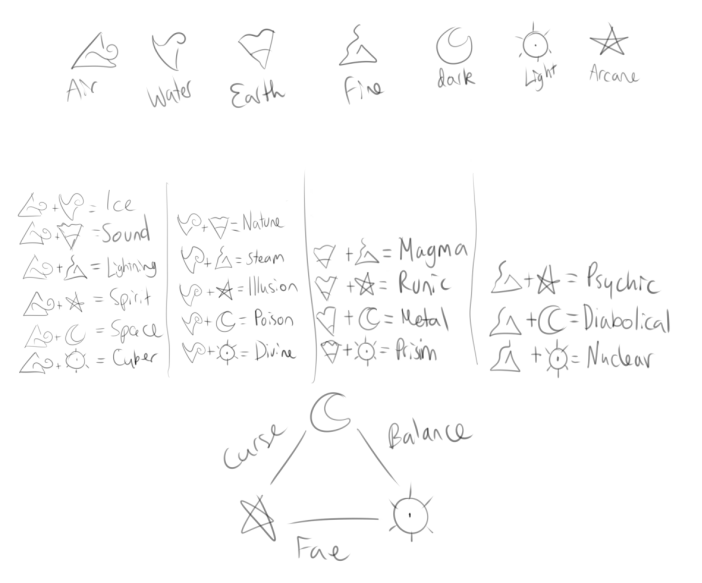 Air Water Earth Fire dark Light Arcane
+ = Ice
+ = Sound
+ = Lightning
+ = Spirit
+ = Space
+ = Cyber
+ = Nature
+ = Steam
+ = Illusion
+ = Poison
+ = Divine
+ = Magma
+ = Runic
+ = Metal
+ = Prism
+ = Psychic
+ = Diabolical
+ = Nuclear
Curse
Balance
Fae